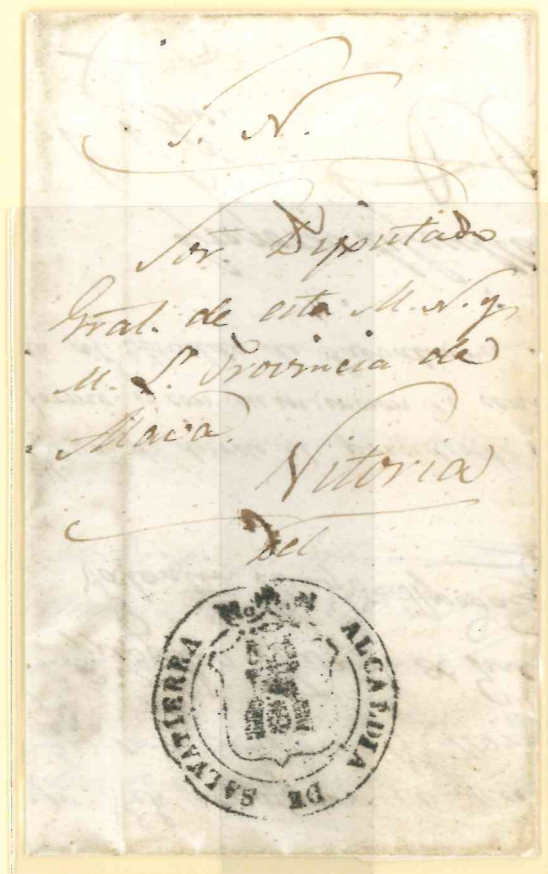 S. N.
Sor. Diputado
Gral. de esta M. N. y
M. L. Provincia de
Alava.
Vitoria
Del
ALCALDIA DE SALVATIERRA